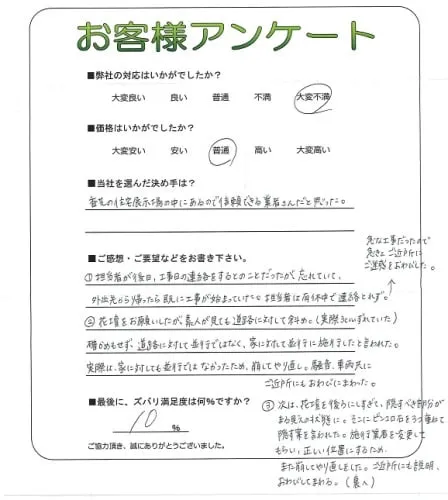 お客様アンケート
■弊社の対応はいかがでしたか？
大変良い 良い 普通 不満 大変不満
■価格はいかがでしたか？
大変安い 安い 普通 高い 大変高い
■当社を選んだ決め手は？
の住宅展示場の中にあるので信頼できる業者さんだと思った。
■ご感想・ご要望などをお書き下さい。
急な工事だったので
急きょ、ご近所に
ご迷惑をおわびした。
① 担当者が後日、工事日の連絡をするとのことだったが、忘れていて、
外出先から帰ったら既に工事が始まっていた。担当者は有休中で連絡とれず。
② 花壇をお願いしたが、素人が見ても道路に対して斜め。(実際
確かめもせず、道路に対して並行ではなく、家に対して並行に施行したと言われた。
実際は、家に対しても並行ではなかったため、崩してやり直し。騒音、車両共に
ご近所にもおわびにまわった。
■最後に、ズバリ満足度は何%ですか？
10 %
ご協力頂き、誠にありがとうございました。
③ 次は、花壇を後ろにしすぎて、隠すべき部分が
まる見えの状態に。そこにピンコロ石をうめ
隠す案を言われた。施行業者を変更して
もらい、正しい位置にするため、
また崩してやり直しました。ご近所にも説明、
おわびしてまわる。(裏へ)